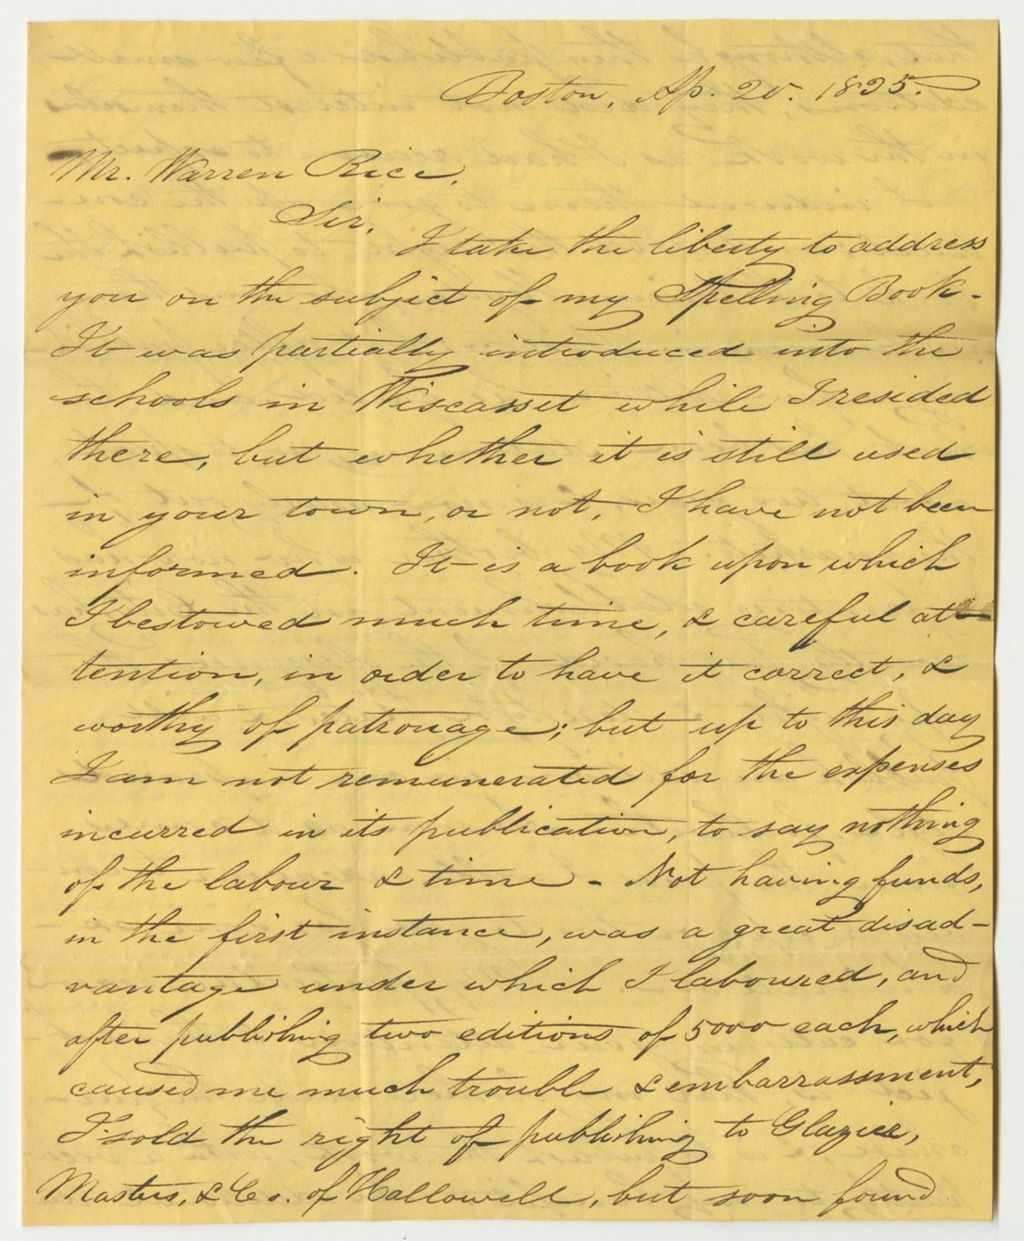 Boston, Ap. 20. 1835.
Mr. Warren Rice,
Sir,
I take the liberty to address
you on the subject of my Spelling Book -
It was partially introduced into the
schools in Wiscasset while I resided
there, but whether it is still used
in your town, or not, I have not been
informed. It is a book upon which
I bestowed much time, & careful at-
tention, in order to have it correct, &
worthy of patronage; but up to this day
I am not remunerated for the expenses
incurred in its publication, to say nothing
of the labour & time - Not having funds,
in the first instance, was a great disad-
vantage under which I laboured, and
after publishing two editions of 5000 each, which
caused me much trouble & embarrassment,
I sold the right of publishing to Glazier,
Masters, & Co. of Hallowell, but soon found